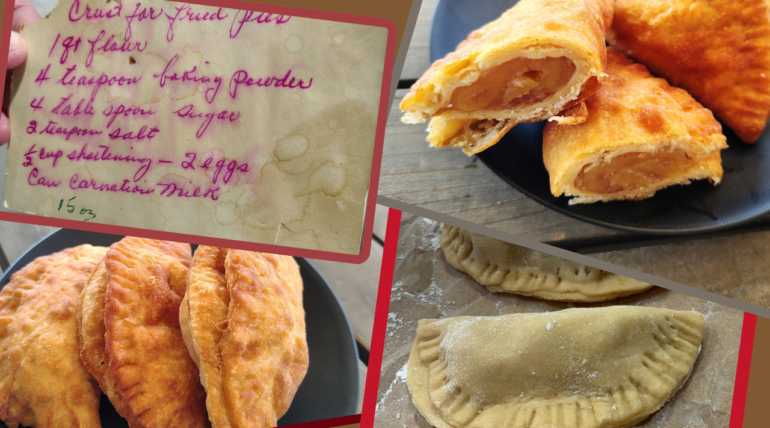 Crust for fried pies
1 qt flour
4 teaspoon baking powder
4 table spoon sugar
2 teaspoon salt
1/2 cup shortening - 2 eggs
Can Carnation Milk
15 oz